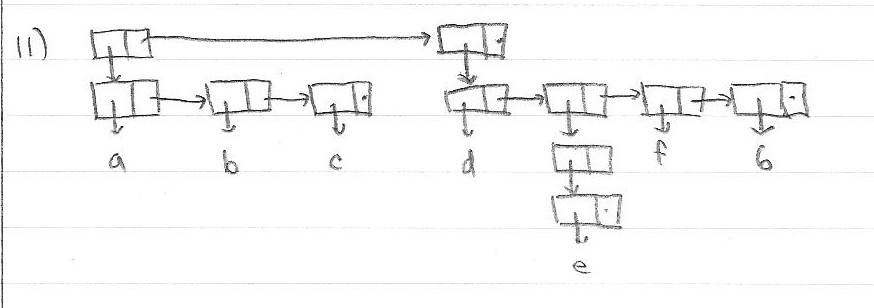 11)
a b c d f 6
e